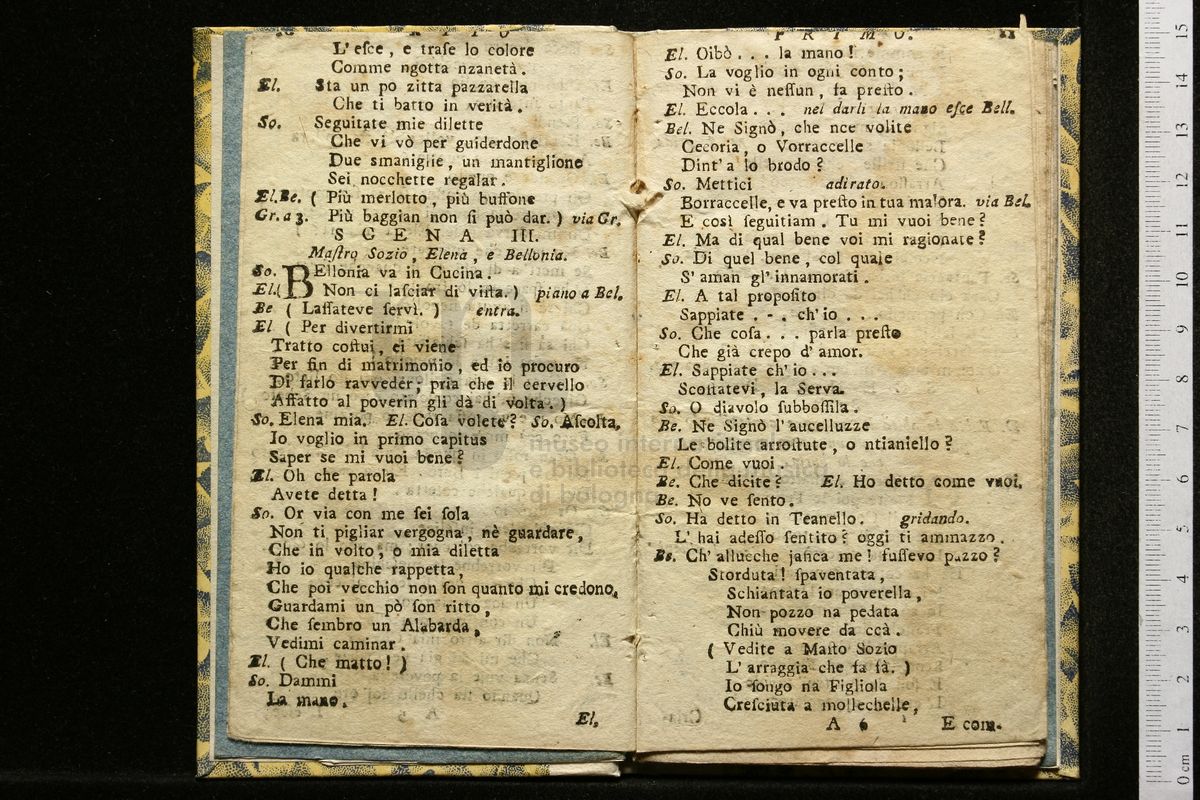 L'esce, e trase lo colore
Comme ngotta nzanetà.
El. Sta un po zitta pazzarella
Che ti batto in verità.
So. Seguitate mie dilette
Che vi vò per guiderdone
Due smaniglie, un mantiglione
Sei nocchette regalar.
El.Be. ( Più merlotto, più buffone
Gr. a 3. Più baggian non si può dar. ) via Gr.
SCENA III.
Mastro Sozio, Elena, e Bellonia.
So. BEllonia va in Cucina.
El.( Non ci lasciar di vista. ) piano a Bel.
Be ( Lassateve servì. ) entra.
El ( Per divertirmi
Tratto costui, ei viene
Per fin di matrimonio, ed io procuro
Di farlo ravveder; pria che il cervello
Affatto al poverin gli dà di volta. )
So. Elena mia. El. Cosa volete? So. Ascolta.
Io voglio in primo capitus
Saper se mi vuoi bene?
El. Oh che parola
Avete detta!
So. Or via con me sei sola
Non ti pigliar vergogna, nè guardare,
Che in volto, o mia diletta
Ho io qualche rappetta,
Che poi vecchio non son quanto mi credono.
Guardami un pò son ritto,
Che sembro un Alabarda,
Vedimi caminar.
El. ( Che matto! )
So. Dammi
La mano.
El.
PRIMO. 11
El. Oibò... la mano!
So. La voglio in ogni conto;
Non vi è nessun, fa presto.
El. Eccola... nel darli la mano esce Bell.
Bel. Ne Signò, che nce volite
Cecoria, o Vorraccelle
Dint' a lo brodo?
So. Mettici adirato.
Borraccelle, e va presto in tua malora. via Bel.
E così seguitiam. Tu mi vuoi bene?
El. Ma di qual bene voi mi ragionate?
So. Di quel bene, col quale
S' aman gl' innamorati.
El. A tal proposito
Sappiate . - . ch' io . . .
So. Che cosa... parla presto
Che già crepo d' amor.
El. Sappiate ch' io...
Scostatevi, la Serva.
So. O diavolo subbossila.
Be. Ne Signò l' aucelluzze
Le bolite arrostute, o ntianiello?
El. Come vuoi.
Be. Che dicite? El. Ho detto come vuoi.
Be. No ve sento.
So. Ha detto in Teanello. gridando.
L' hai adesso sentito? oggi ti ammazzo.
Be. Ch' allucche janca me! fussevo pazzo?
Storduta! spaventata,
Schiantata io poverella,
Non pozzo na pedata
Chiù movere da ccà.
( Vedite a Masto Sozio
L' arraggia che fa fà. )
Io songo na Figliola
Cresciuta a mollechelle,
A 6 E com-